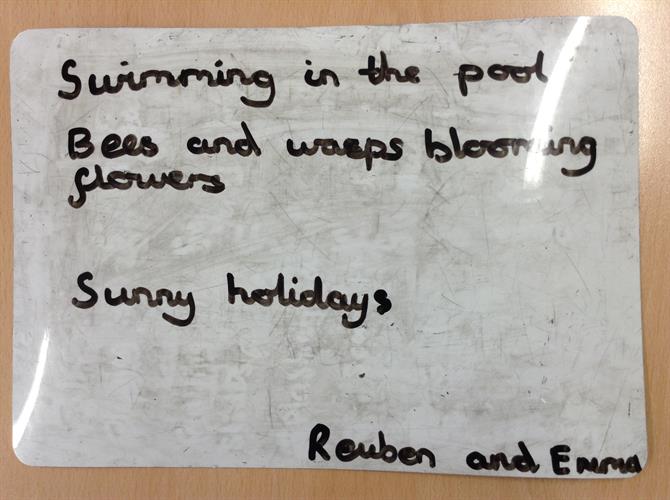 Swimming in the pool
Bees and wasps blooming
flowers
Sunny holidays
Reuben and Emma